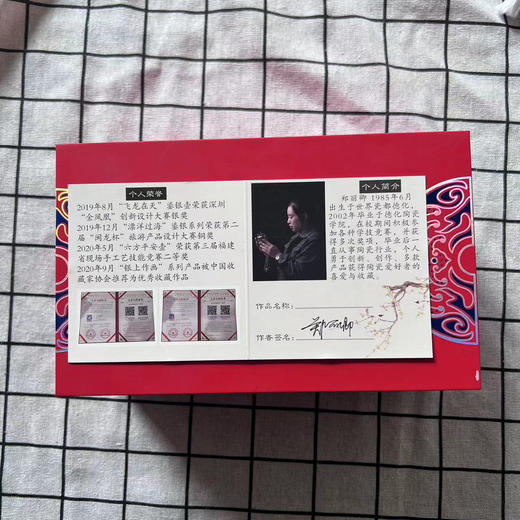 个人荣誉
2019年8月“飞龙在天”鎏银壶荣获深圳
“金凤凰”创新设计大赛银奖
2019年12月“漂洋过海”鎏银系列荣获第二
届“闽龙杯”旅游产品设计大赛铜奖
2020年5月“六方手安壶”荣获第三届福建
省现场手工艺技能竞赛二等奖
2020年9月“银上作画”系列产品被中国收
藏家协会推荐为优秀收藏作品
个人简介
郑丽卿 1985年6月
出生于世界瓷都德化，
2002年毕业于德化陶瓷
学院，在校期间积极参
加各种学校竞赛，并获
得多次奖项，毕业后一
直从事陶瓷行业，个人
勇于创新，创作，多款
产品获得陶瓷爱好者的
喜爱与收藏。
作品名称：
作者签名：